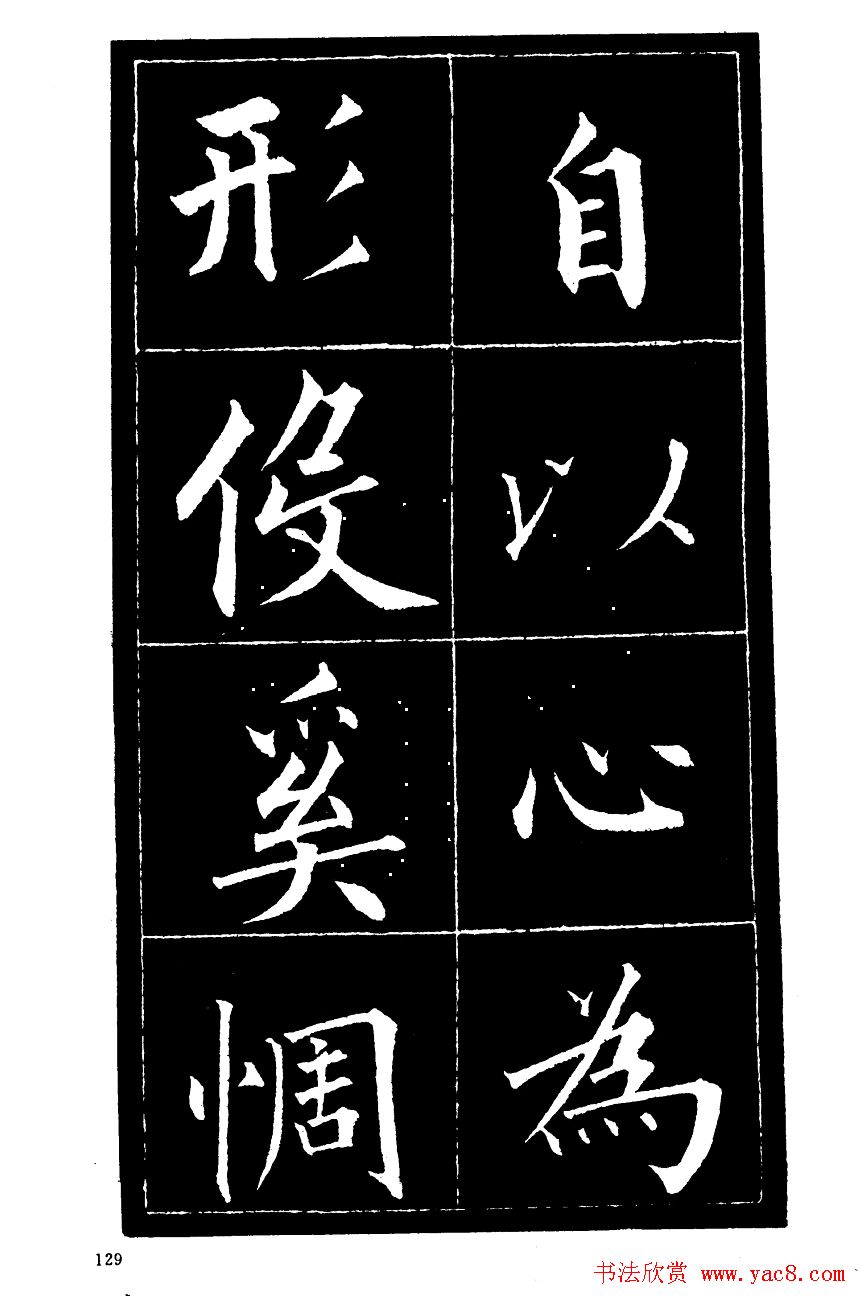 自以心為
形役奚惆
129
书法欣赏 www.yac8.com